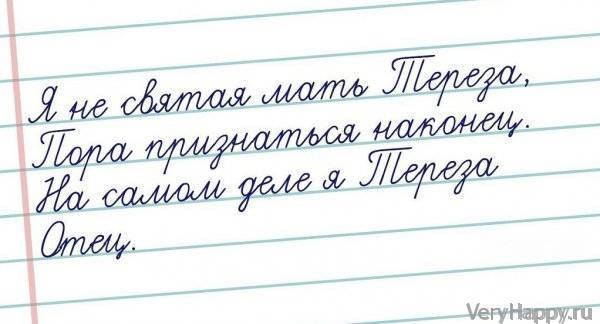 Я не святая мать Тереза,
Пора признаться наконец.
На самом деле я Тереза
Отец.
VeryHappy.ru